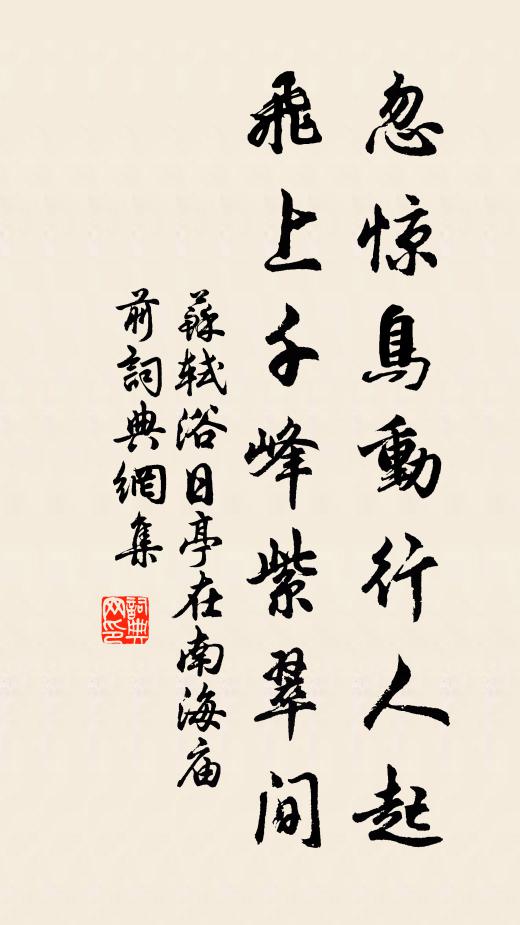 忽惊鳥動行人起
飛上千峰紫翠间
蘇軾浴日亭在南海庙
前詞典網集
詞典
网印